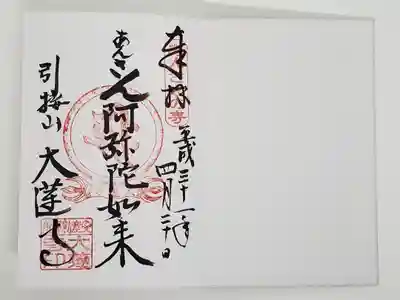 奉拝
平成三十一年
四月二十日
あんさん阿弥陀如来
引接山
大蓮寺